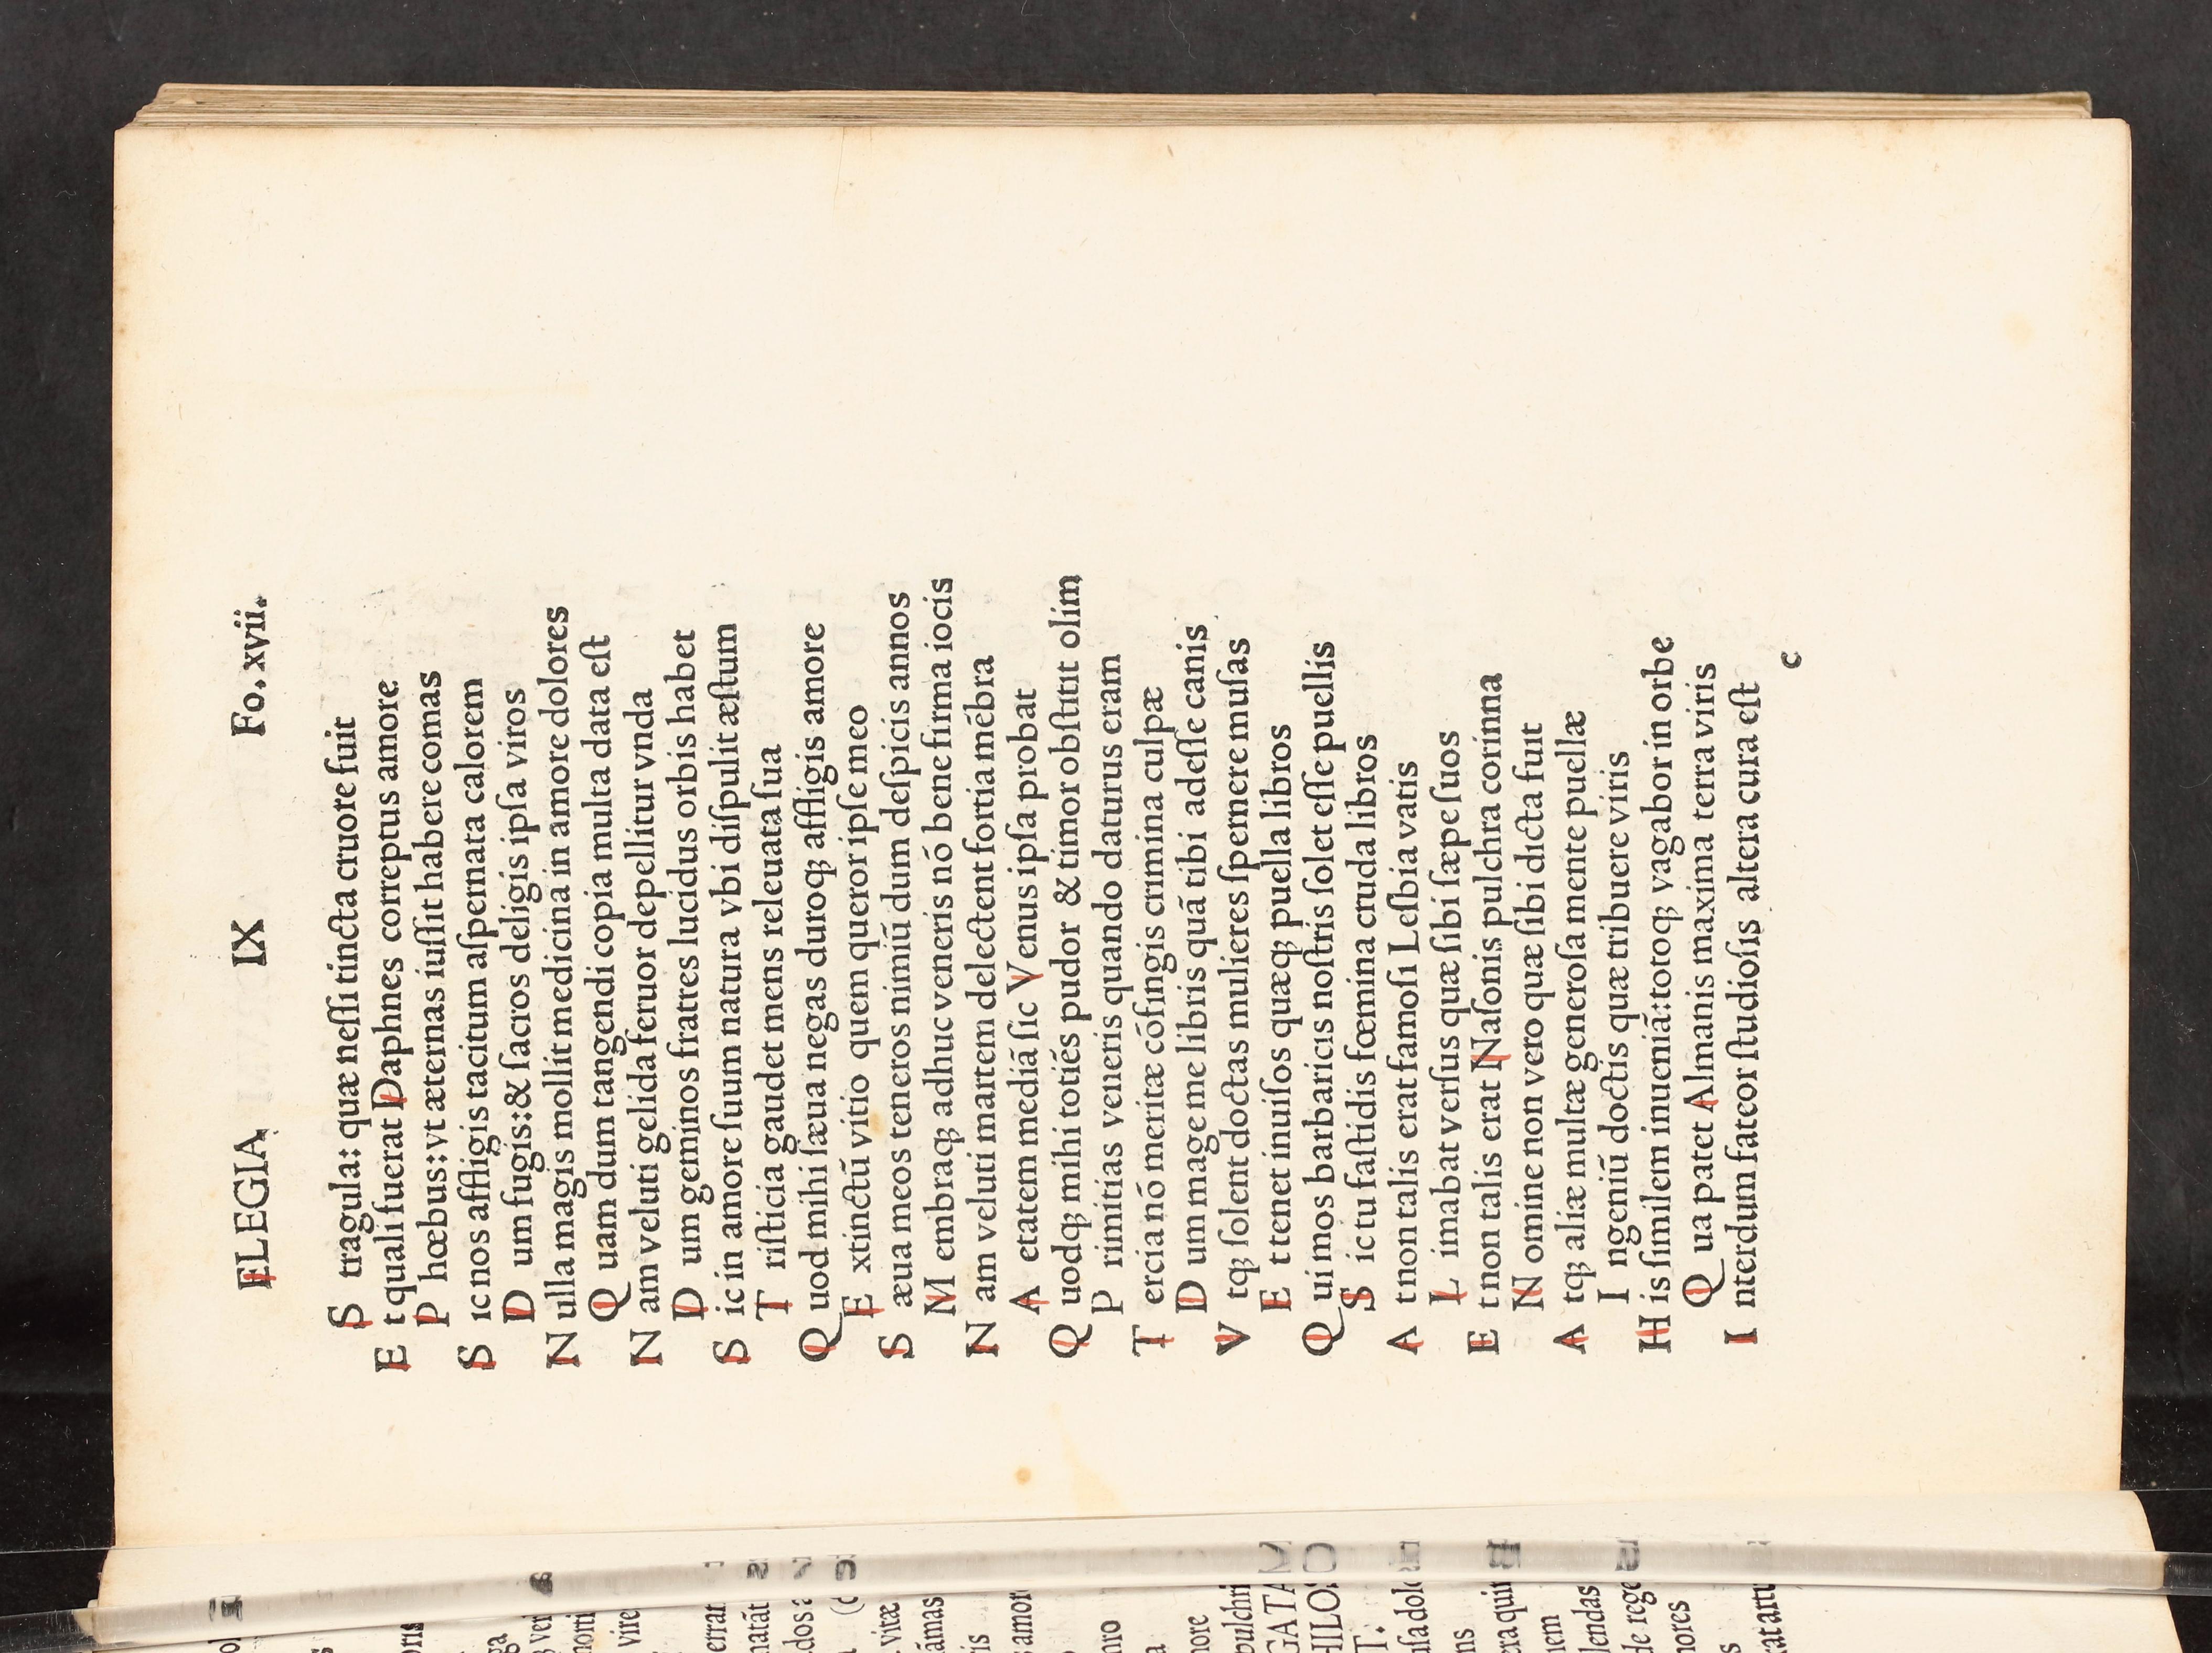 ELEGIA IX Fo. xvii.
S tragula: quæ neſſi tincta cruore fuit
E t quali fuerat Daphnes correptus amore
P hœbus: vt æternas iuſſit habere comas
S ic nos affligis tacitum aſpernata calorem
D um fugis: & ſacros deligis ipſa viros
N ulla magis mollit medicina in amore dolores
Q uam dum tangendi copia multa data eſt
N am veluti gelida feruor depellitur vnda
D um geminos fratres lucidus orbis habet
S ic in amore ſuum natura vbi diſpulit æſtum
T riſticia gaudet mens releuata ſua
Q uod mihi ſæua negas duroqꝫ affligis amore
E xtinctū vitio quem queror ipſe meo
S æua meos teneros nimiū dum deſpicis annos
M embraqꝫ adhuc veneris nō bene firma iocis
N am veluti martem delectent fortia mēbra
A etatem mediā ſic Venus ipſa probat
Q uodqꝫ mihi totiēs pudor & timor obſtitit olim
P rimitias veneris quando daturus eram
T ercia nō meritæ cōfingis crimina culpæ
D um mage me libris quā tibi adeſſe canis
V tqꝫ ſolent doctas mulieres ſpernere muſas
E t tenet inuiſos quæqꝫ puella libros
Q ui mos barbaricis noſtris ſolet eſſe puellis
S ic tu faſtidis fœmina cruda libros
A t non talis erat famoſi Leſbia vatis
L imabat verſus quæ ſibi ſæpe ſuos
E t non talis erat Naſonis pulchra corinna
N omine non vero quæ ſibi dicta fuit
A tqꝫ aliæ multæ generoſa mente puellæ
I ngeniū doctis quæ tribuere viris
H is ſimilem inueniā: totoqꝫ vagabor in orbe
Q ua patet Almanis maxima terra viris
I nterdum fateor ſtudioſis altera cura eſt
c